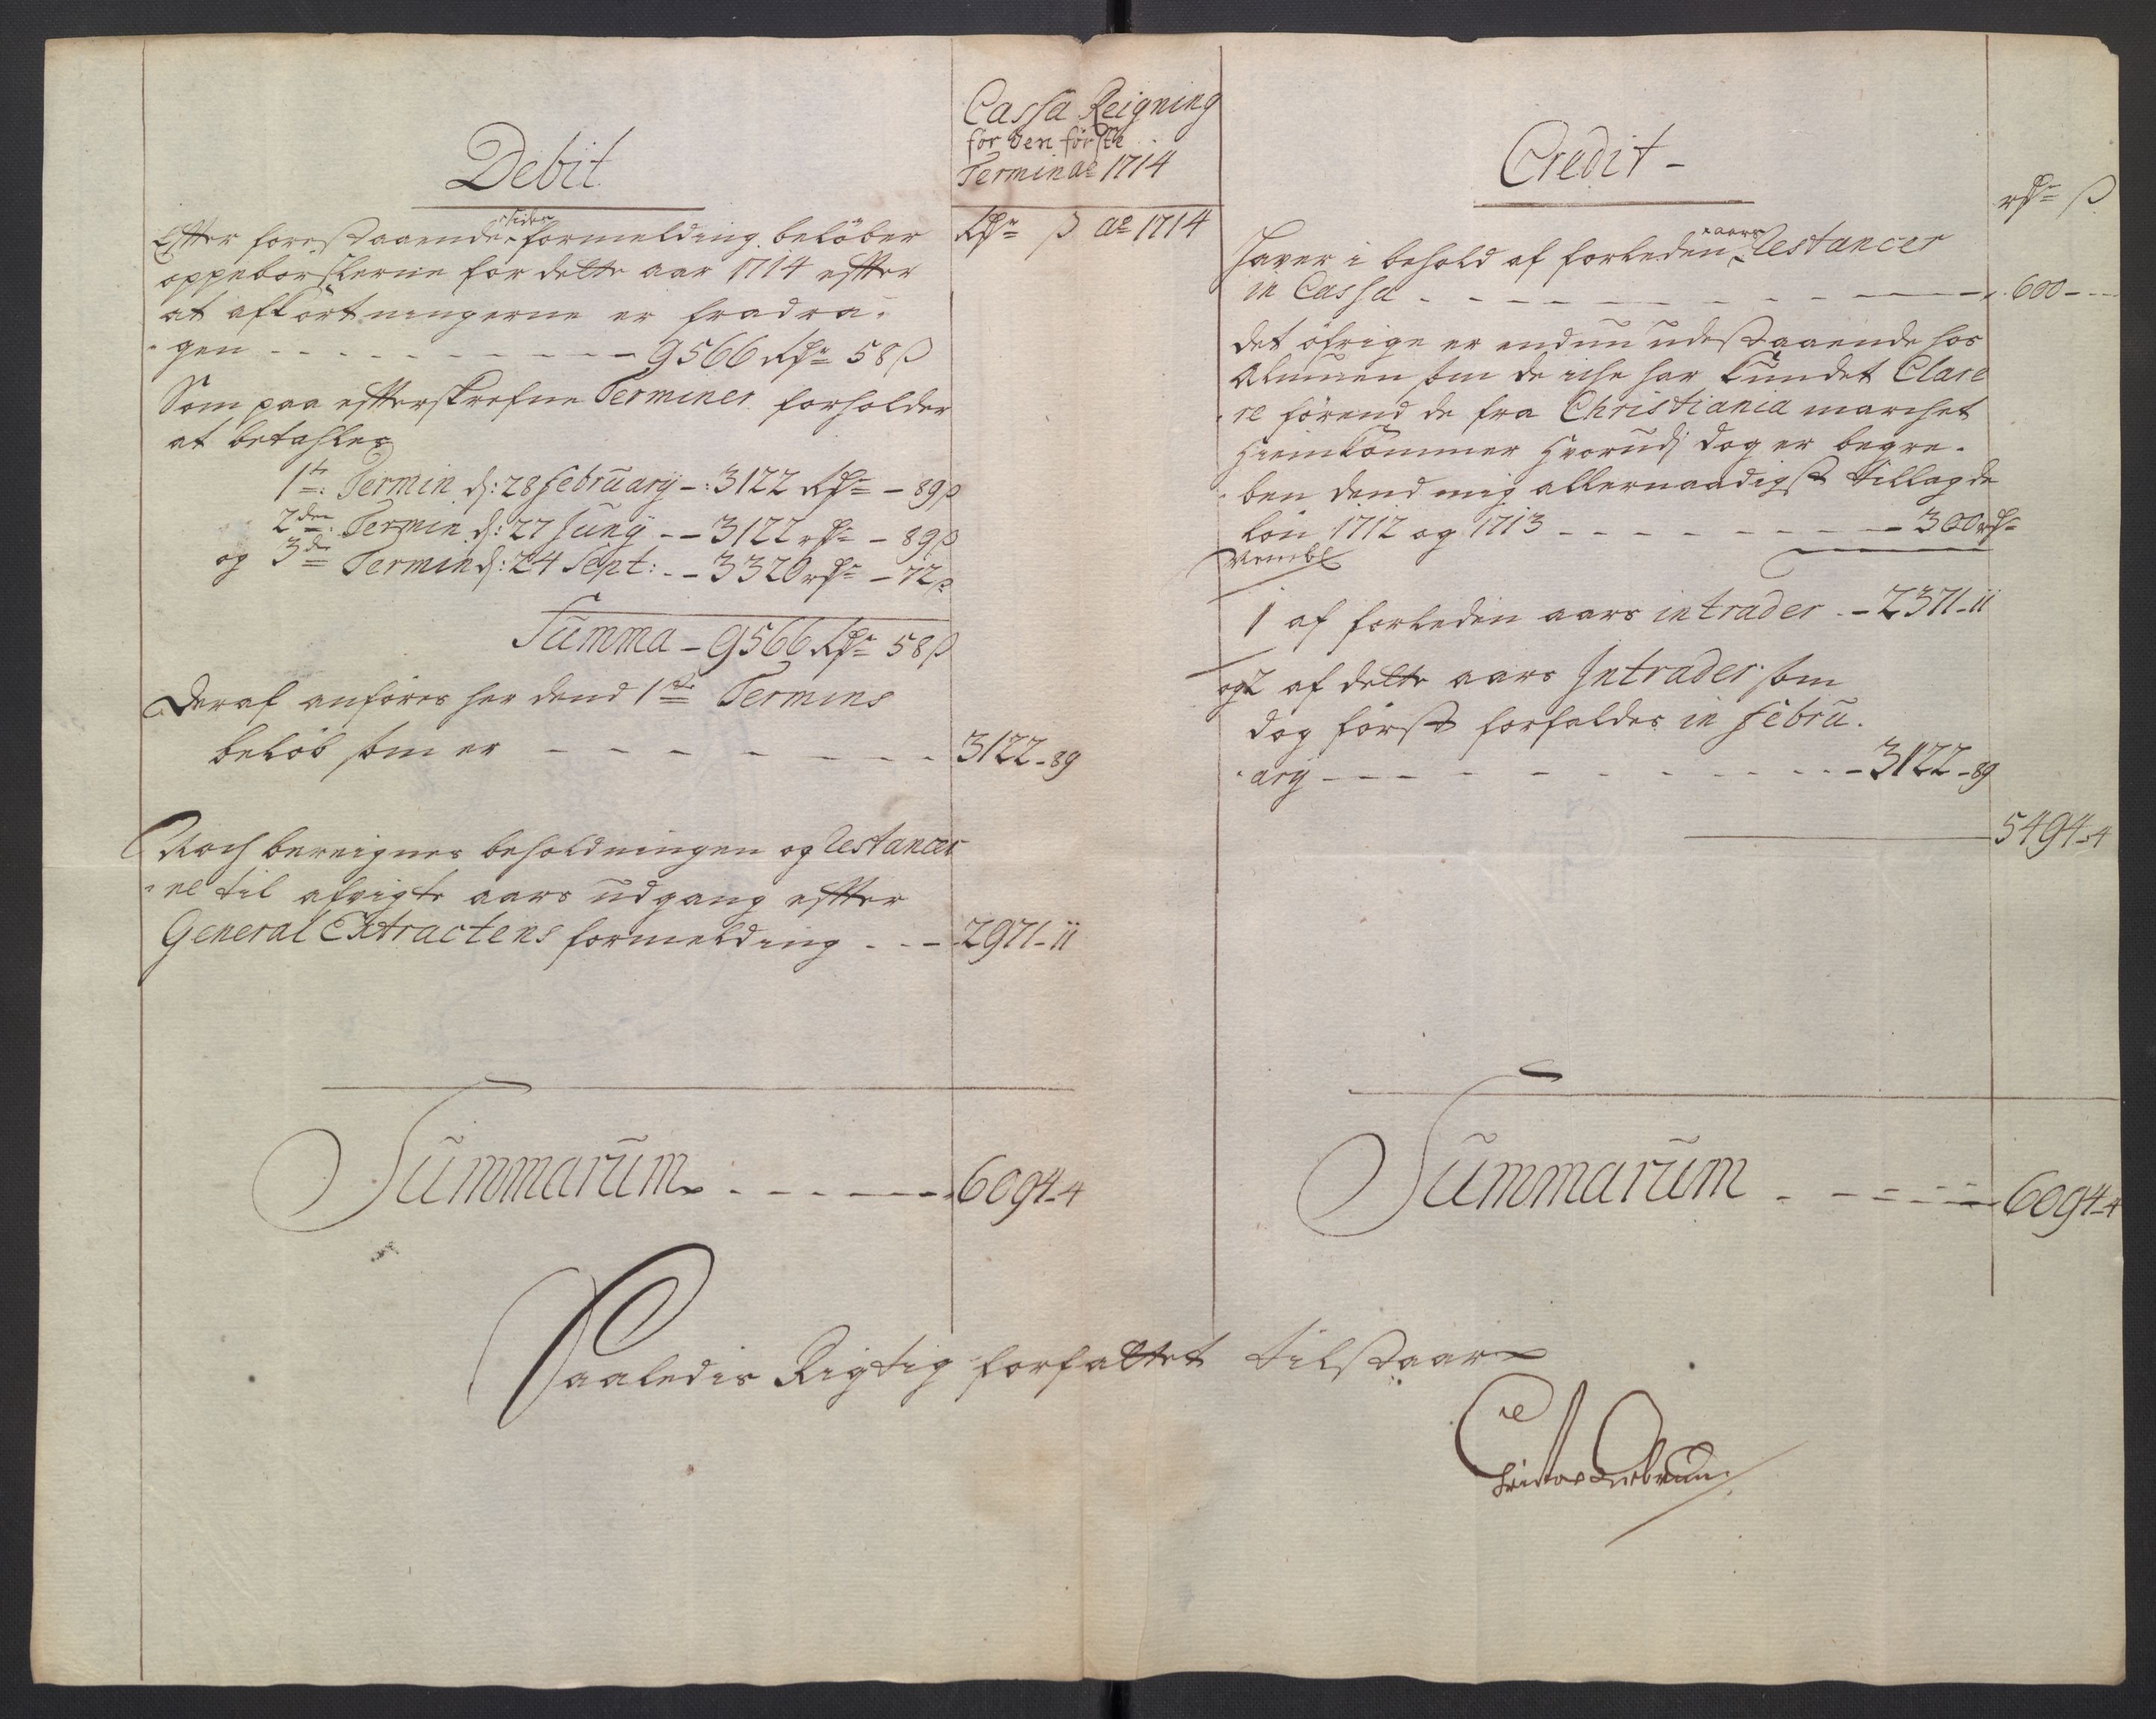 Cassa Reigning
for den förste
Termin ao 1714
Debit
Rdr ß ao 1714
sider
Effter forestaaende formelding beløber
oppebörslerne for dette aar 1714 effter
at afkortningerne er fradra-
gen - - - 9566 Rdr 58 ß
Som paa effterskrefne Terminer forholder
at betahles
1te Termin d: 28 February - 3122 Rdr - 89 ß
2den Termin d: 27 Juny - - 3122 rdr - 89 ß
og 3de Termin d: 24 Sept: - - 3320 rdr - 72 ß
Summa - 9566 Rdr 58 ß
Deraf anföres her dend 1ste Termins
belöb som er - - - 3122 - 89
Noch bereignes beholdningen og Restancer
ne til afvigte aars udgang effter
General Extractens formelding - - - 2971 - 11
Summarum - - - 6094 - 4
Credit -
rdr ß
aars
Haver i behold af forleden Restancer
in Cassa - - - 600 - -
det öfrige er endnu udestaaende hos
Almuen som de iche har kundet Clare
re förend de fra Christiania marchet
hiemkommer hvorudj dog er begre-
ben dend mig allernaadigst tillagde
lön 1712 og 1713 - - - 300 rdr
Nembl
1 af forleden aars intrader - 2371 - 11
og 2 af dette aars Intrader som
dog först forfalder in Febru-
ary - - - 3122 - 89
5494 - 4
Summarum - - - 6094 - 4
Saaledis Rigtig forfattet tilstaar